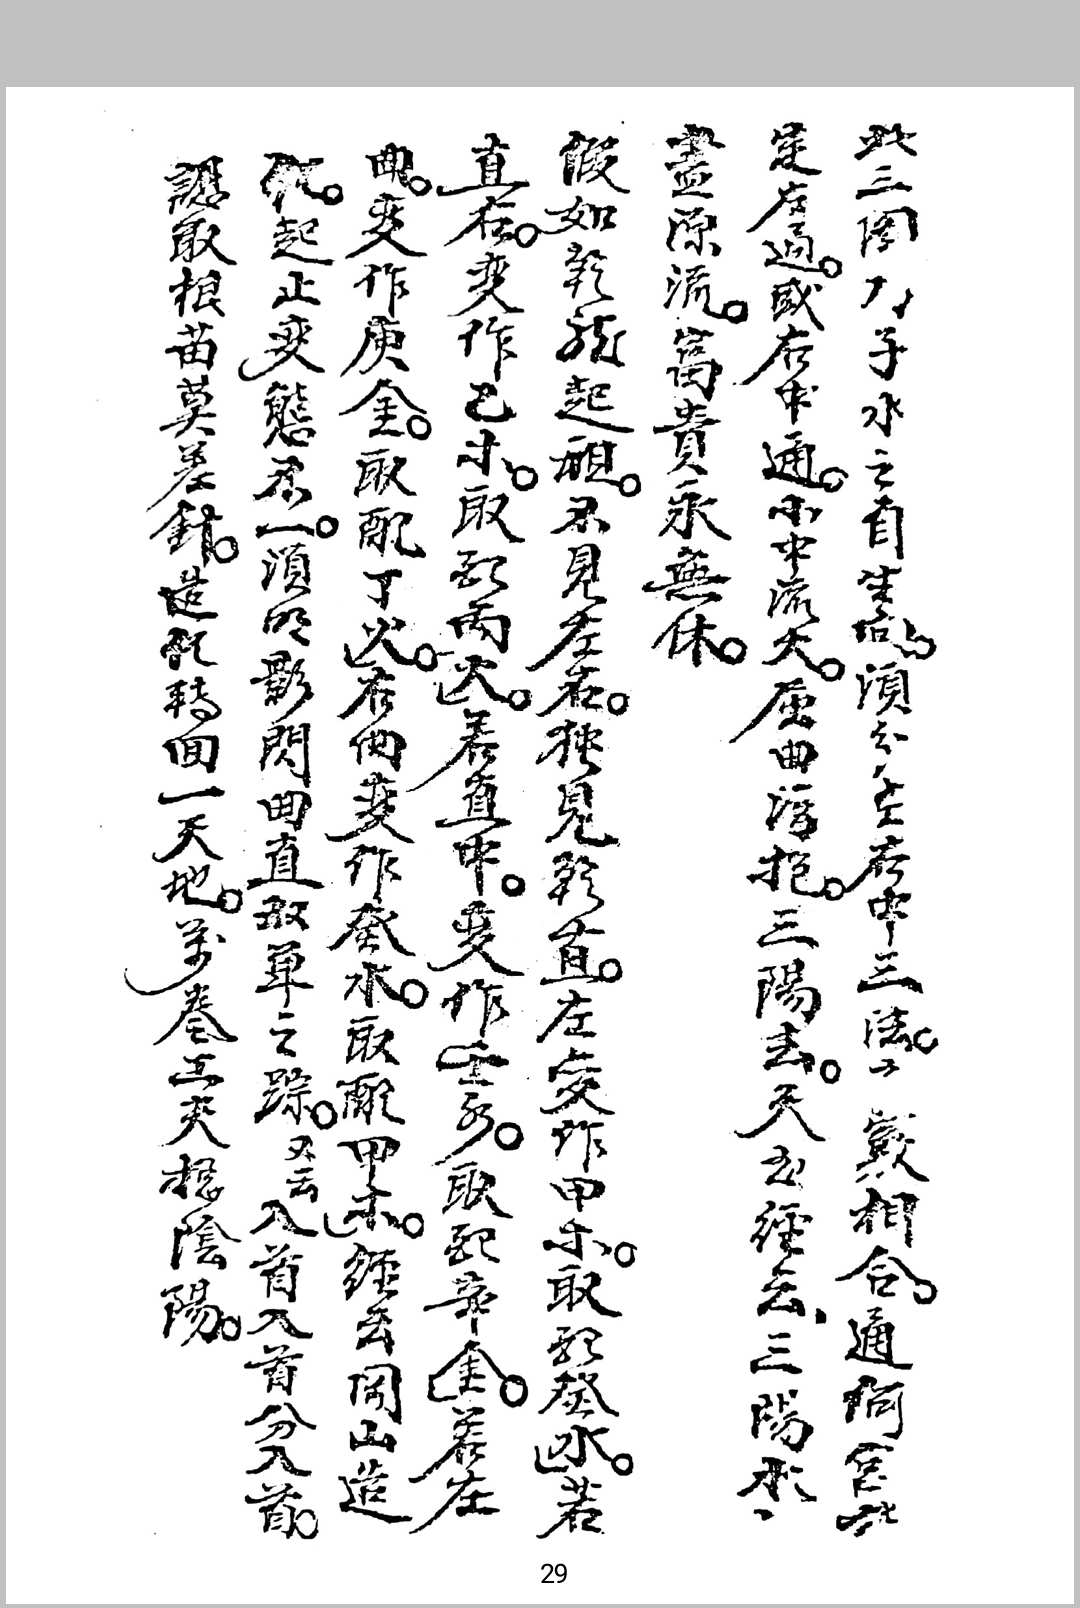 此三陽乃子水之自生焉須分左右中三法歟相合通何宮此
是右過或右中通小中流大屈曲灣抱三陽去天玉經云三陽水
盡源流富貴永無休
假如乾龍起祖不見左右獨見乾直左变作甲木取配癸水若
直右变作乙木取配丙火若直中变作壬水取配辛金若左
曲变作庚金取配丁火右曲变作癸水取配甲木經云岡山造
化起止变態不一須明影閃曲直取單之踪又云入首入首分入首
認取根苗莫差錯造化轉回一天地萬卷工夫總陰陽
29